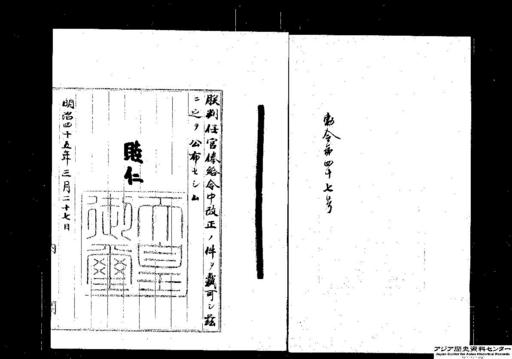 勅令第四十七号
朕判任官俸給令中改正ノ件ヲ裁可シ茲
ニ之ヲ公布セシム
睦仁
天皇
御璽
明治四十五年三月二十七日
内 閣
アジア歴史資料センター
Japan Center for Asian Historical Records